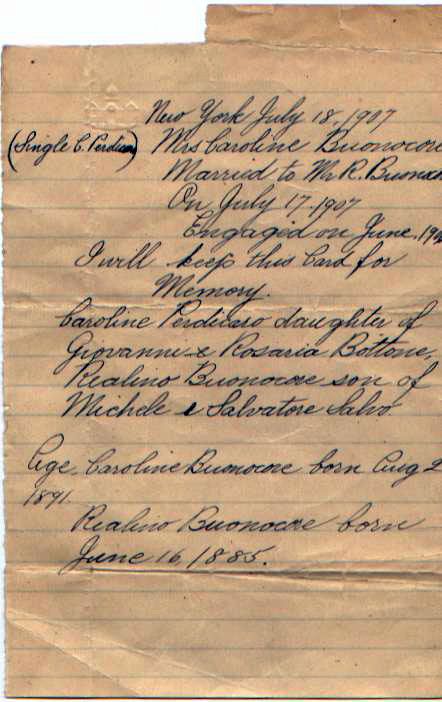 New York July 18, 1907
(Single C. Perdicaro) Mrs Caroline Buonocore
Married to Mr R. Buonoco
On July 17. 1907
Engaged on June. 190
I will keep this Card for
Memory.
Caroline Perdicaro daughter of
Giovanni e Rosaria Bottone,
Realino Buonocore son of
Michele e Salvatore Salvo
Age. Caroline Buonocore born Aug 2
1891.
Realino Buonocore born
June 16, 1885.